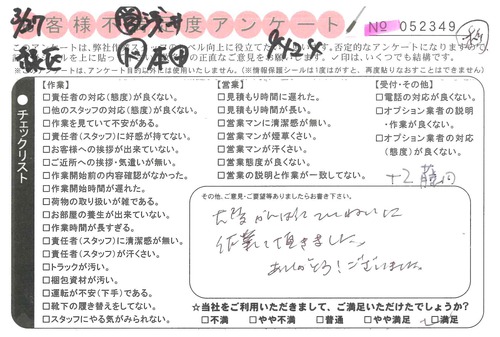 お客様不満足度アンケート
No 052349
3/27
このアンケートは、弊社
お客様の正直なご意見をお願いします。✓印は、いくつでも結構です。
※このアンケートは、アンケート目的以外には使用いたしません。(※情報保護シールは1度がすと、再度貼りなおすことはできません)
チェックリスト
【作業】
□責任者の対応(態度)が良くない。
□他のスタッフの対応(態度)が良くない。
□作業を見ていて不安がある。
□責任者(スタッフ)に好感が持てない。
□お客様への挨拶が出来ていない。
□ご近所への挨拶・気遣いが無い。
□作業開始前の内容確認がなかった。
□作業開始時間が遅れた。
□荷物の取り扱いが雑である。
□お部屋の養生が出来ていない。
□作業時間が長すぎる。
□責任者(スタッフ)に清潔感が無い。
□責任者(スタッフ)が汗くさい。
□トラックが汚い。
□梱包資材が汚い。
□運転が不安(下手)である。
□靴下の履き替えをしてない。
□スタッフにやる気がみられない。
【営業】
□見積もり時間に遅れた。
□見積もり時間が長い。
□営業マンに清潔感が無い。
□営業マンが煙草くさい。
□営業マンが汗くさい。
□営業態度が良くない。
□営業の説明と作業が一致してない。
【受付・その他】
□電話の対応が良くない。
□オプション業者の説明
・作業が良くない。
□オプション業者の対応
(態度)が良くない。
その他、ご意見・ご要望等ありましたらお書き下さい。
大変がんばって、ていねいに
作業して頂きました。
ありがとう!ございました。
☆当社をご利用いただきまして、ご満足いただけたでしょうか?
□不満 □やや不満 □普通 □やや満足 ☑満足